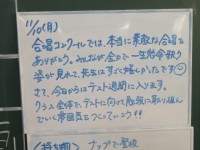 11/10(月)
合唱コンクールでは、本当に素敵な合唱を
ありがとう。みんなが全力で一生懸命歌う
姿が見れて、先生はすごく嬉しかったです
さて、今日からはテスト週間に入ります。
クラス全体で、テストに向けて勉強に取り組ん
でいく雰囲気をつくっていこう!!
〈持ち物〉ナップで登校